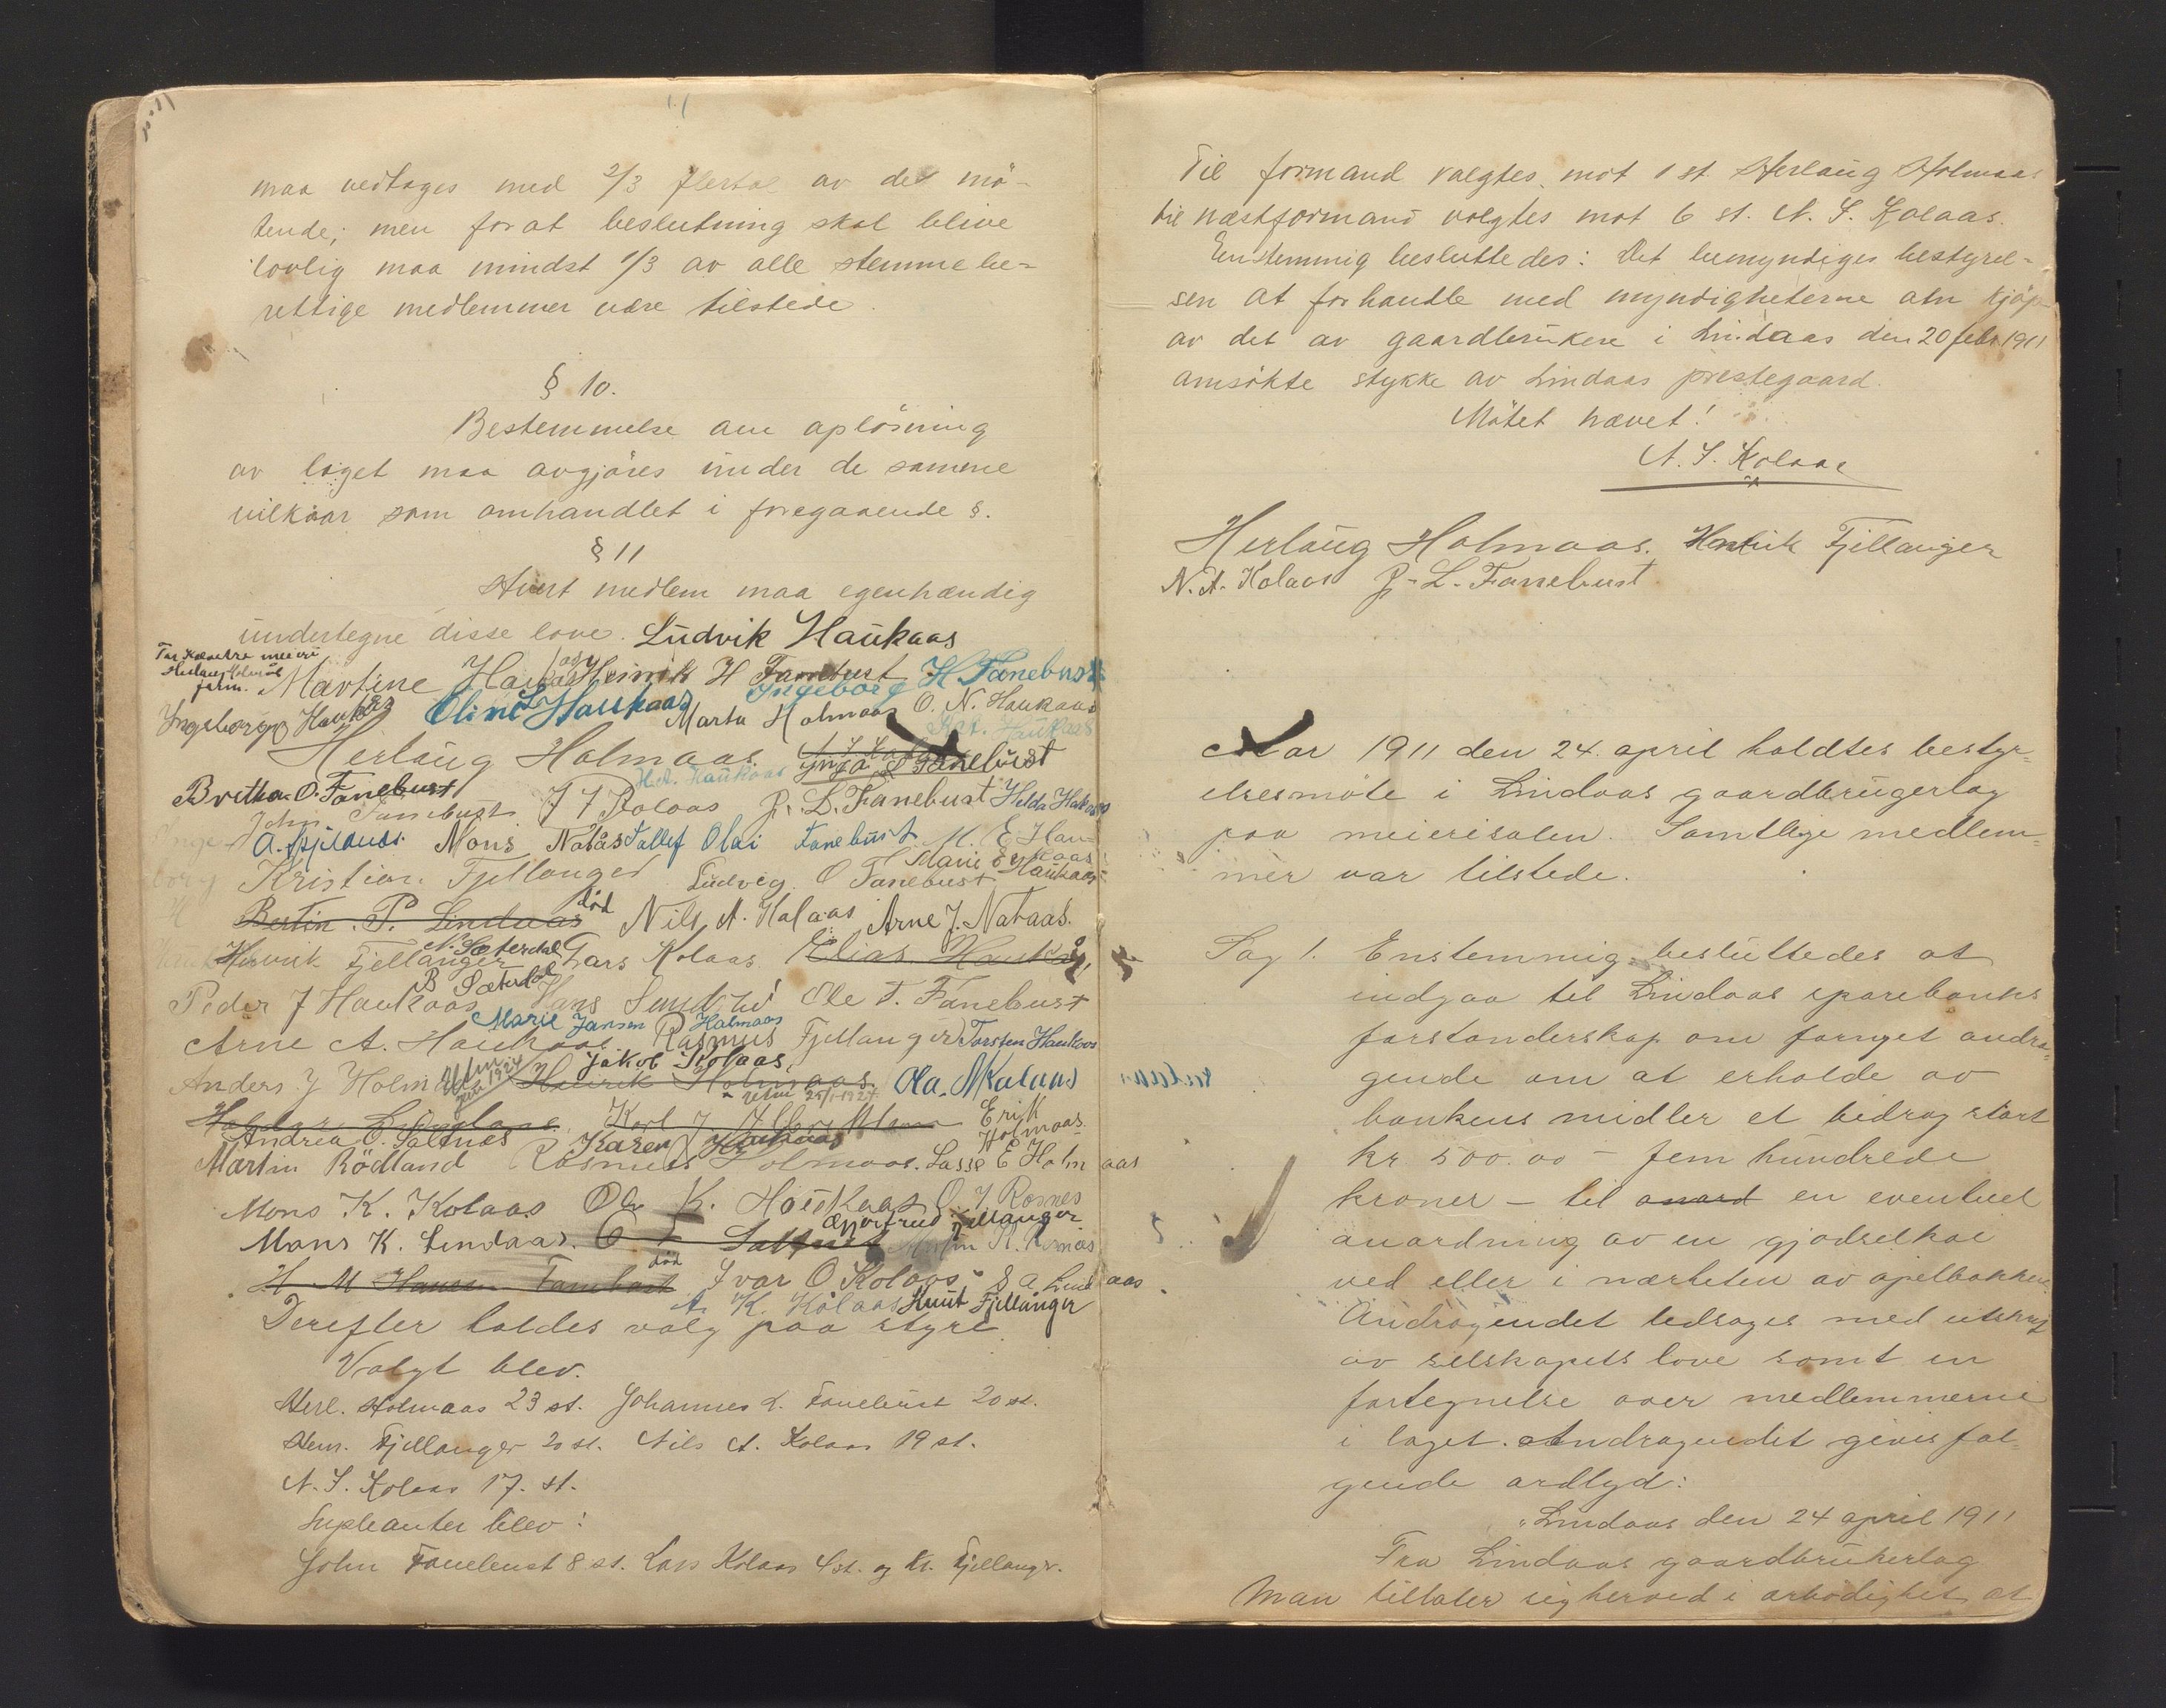 maa vedtages med 2/3 flertal av de mö-
tende; men for at beslutning skal blive
lovlig maa mindst 1/3 av alle stemmebe-
rettige medlemmer være tilstede.
§ 10.
Bestemmelse om oplösning
av laget maa avgjöres under de samme
vilkaar som omhandlet i foregaaende §.
§ 11
Hvert medlem maa egenhændig
undertegne disse love. Ludvik Haukaas
Martine Haukaas Henrik H Fanebust H. Fanebust
Ingeborg
Ingeborg Haukås Oline L Haukaas Marta Holmaas O. N. Haukaas
Herlaug Holmaas Inga L Fanebust
Britha O. Fanebust
John Fanebust J J Kolaas J. L. Fanebust
Mons Nataas Olai Fanebust
Kristian Fjellanger Ludvig O Fanebust Marie E Haukaas
Bertin P. Lindaas død Nils A. Kolaas Arne J. Nataas.
N. Sæterdal
Henrik Fjellanger Lars Kolaas Elias Haukås
B Sæterdal
Peder J Haukaas Ole T. Fanebust
Marie Jansen Holmaas
Arne A. Haukaas Rasmus Fjellanger Torsten Haukaas
Jakob Kolaas
Anders J Holmaas Henrik Holmaas Ola. M Kolaas
Erik Holmaas
Andrea O. Saltnes Karen Haukaas
Martin Rödland Rasmus Holmaas. Lasse E Holmaas
Mons K. Kolaas O. J. Risnes
Gjertrud Fjellanger
Mons K. Lindaas.
død Ivar O Kolaas S a Lindaas
K. Kolaas Knut Fjellanger
Derefter holdes valg paa styre
Valgt blev.
Herl. Holmaas 23 st. Johannes L. Fanebust 20 st.
Hen. Fjellanger 20 st. Nils A. Kolaas 19 st.
N. J. Kolaas 17. st.
Supleanter blev:
John Fanebust 8 st. Lars Kolaas 4 st. og Kr. Fjellanger.
Til formand valgtes mot 1 st. Herlaug Holmaas
til næstformand valgtes mot 6 st. N. J. Kolaas.
Enstemmig besluttedes: Det bemyndiges bestyrel-
sen at forhandle med myndigheterne om kjöp
av det av gaardbrukere i Lindaas den 20 febr. 1911
ansökte stykke av Lindaas prestegaard.
Mötet hævet!
N. J. Kolaas
Herlaug Holmaas. Henrik Fjellanger
N. A. Kolaas J. L. Fanebust
Aar 1911 den 24. april holdtes besty-
relsesmöte i Lindaas gaardbrugerlag
paa meierisalen. Samtlige medlem-
mer var tilstede.
Sag 1. Enstemmig besluttedes at
indgaa til Lindaas sparebanks
forstanderskap om fornyet andra-
gende om at erholde av
bankens midler et bidrag stort
kr 500.00 – fem hundrede
kroner – til anord en eventuel
anordning av en gjödselkai
ved eller i nærheten av apelbakken
Andragendet ledsages med utskrift
av selskapets love samt en
fortegnelse over medlemmerne
i laget. Andragendet gives föl-
gende ordlyd:
"Lindaas den 24 april 1911
Fra Lindaas gaardbrukerlag
Man tillater sig herved i ærbödighet at